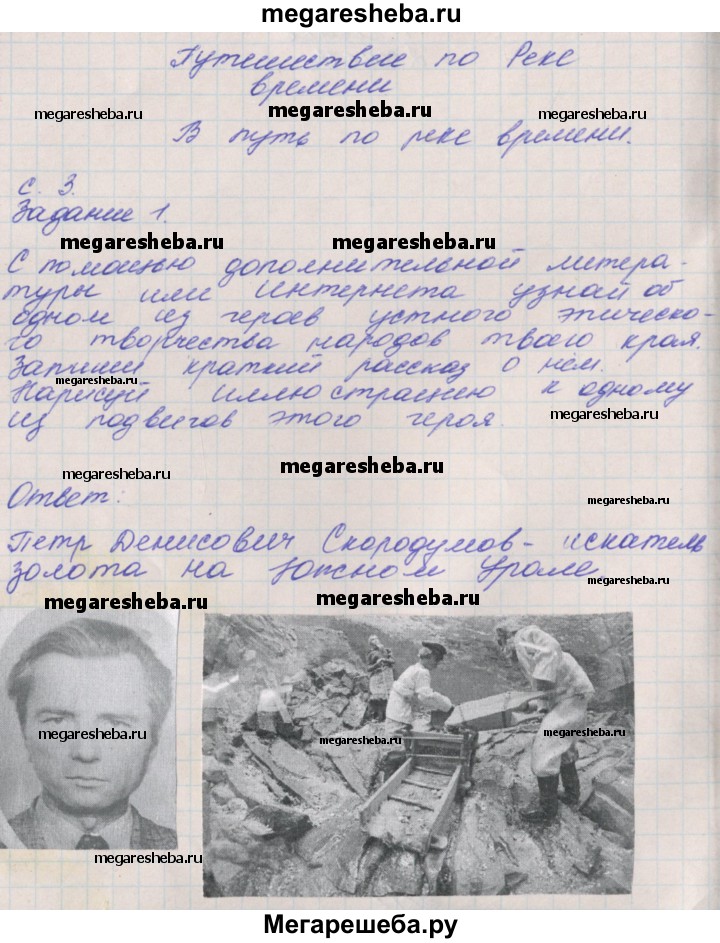 megaresheba.ru
Путешествие по Реке
времени
megaresheba.ru
megaresheba.ru
megaresheba.ru
В путь по реке времени.
с. 3.
Задание 1.
megaresheba.ru
megaresheba.ru
С помощью дополнительной литера-
туры или Интернета узнай об
одном из героев устного эпическо-
го творчества народов твоего края.
Запиши краткий рассказ о нём.
megaresheba.ru
Нарисуй иллюстрацию к одному
megaresheba.ru
из подвигов этого героя.
megaresheba.ru
megaresheba.ru
Ответ:
megaresheba.ru
Петр Денисович Скородумов - искатель
золота на Южном Урале
megaresheba.ru
megaresheba.ru
megaresheba.ru
megaresheba.ru
megaresheba.ru
megaresheba.ru
megaresheba.ru
Мегарешеба.ру